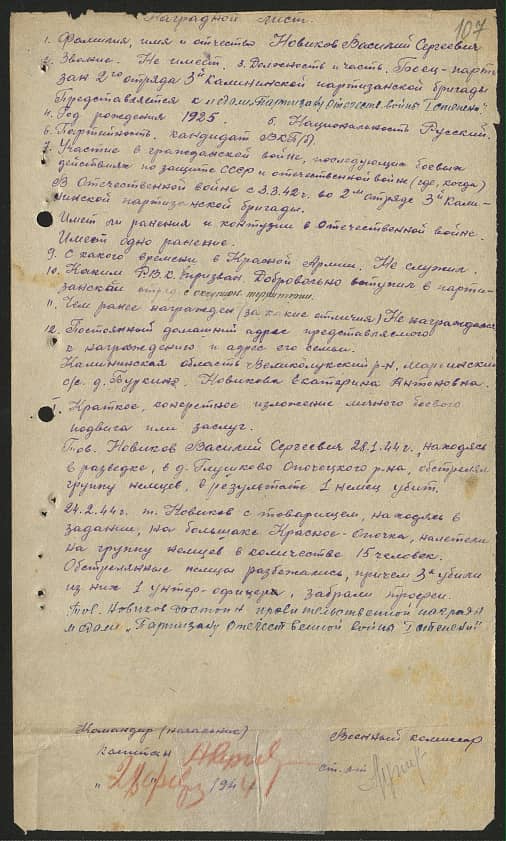 107
Наградной лист.
1. Фамилия, имя и отчество Новиков Василий Сергеевич
2. Звание. Не имеет. 3. Должность и часть. Боец-парти-
зан 2го отряда 3й Калининской партизанской бригады
Представляется к медали „Партизану Отечеств. войны I степени"
4. Год рождения 1925. 5. Национальность Русский.
6. Партийность. кандидат ВКП(б).
7. Участие в гражданской войне, последующих боевых
действиях по защите СССР и отечественной войне (где, когда)
В Отечественной войне с 3.3.42г. во 2м отряде 3й Кали-
нинской партизанской бригады.
Имеет ли ранения и контузии в Отечественной войне.
Имеет одно ранение.
9. С какого времени в Красной Армии. Не служил.
10. Каким РВК призван. Добровольно вступил в парти-
занский отряд с оккупир. территории.
11. Чем ранее награжден (за какие отличия) Не награждался
12. Постоянный домашний адрес представляемого
к награждению и адрес его семьи.
Калининская область Великолукский р-н, Марьинский
с/с. д. Буркино, Новикова Екатерина Антоновна.
I. Краткое, конкретное изложение личного боевого
подвига или заслуг.
Тов. Новиков Василий Сергеевич 28.1.44г., находясь
в разведке, в д. Глушково Опочецкого р-на, обстрелял
группу немцев, в результате 1 немец убит.
24.2.44г. т. Новиков с товарищем, находясь в
задании, на большаке Красное-Опочка, налетели
на группу немцев в количестве 15 человек.
Обстрелянные немцы разбежались, причем 3х убили
из них 1 унтер-офицера, забрали трофеи.
Тов. Новиков достоин правительственной награды
медали „Партизану Отечественной войны I степени"
Командир (начальник) Военный комиссар
капитан ст. л-т
1944